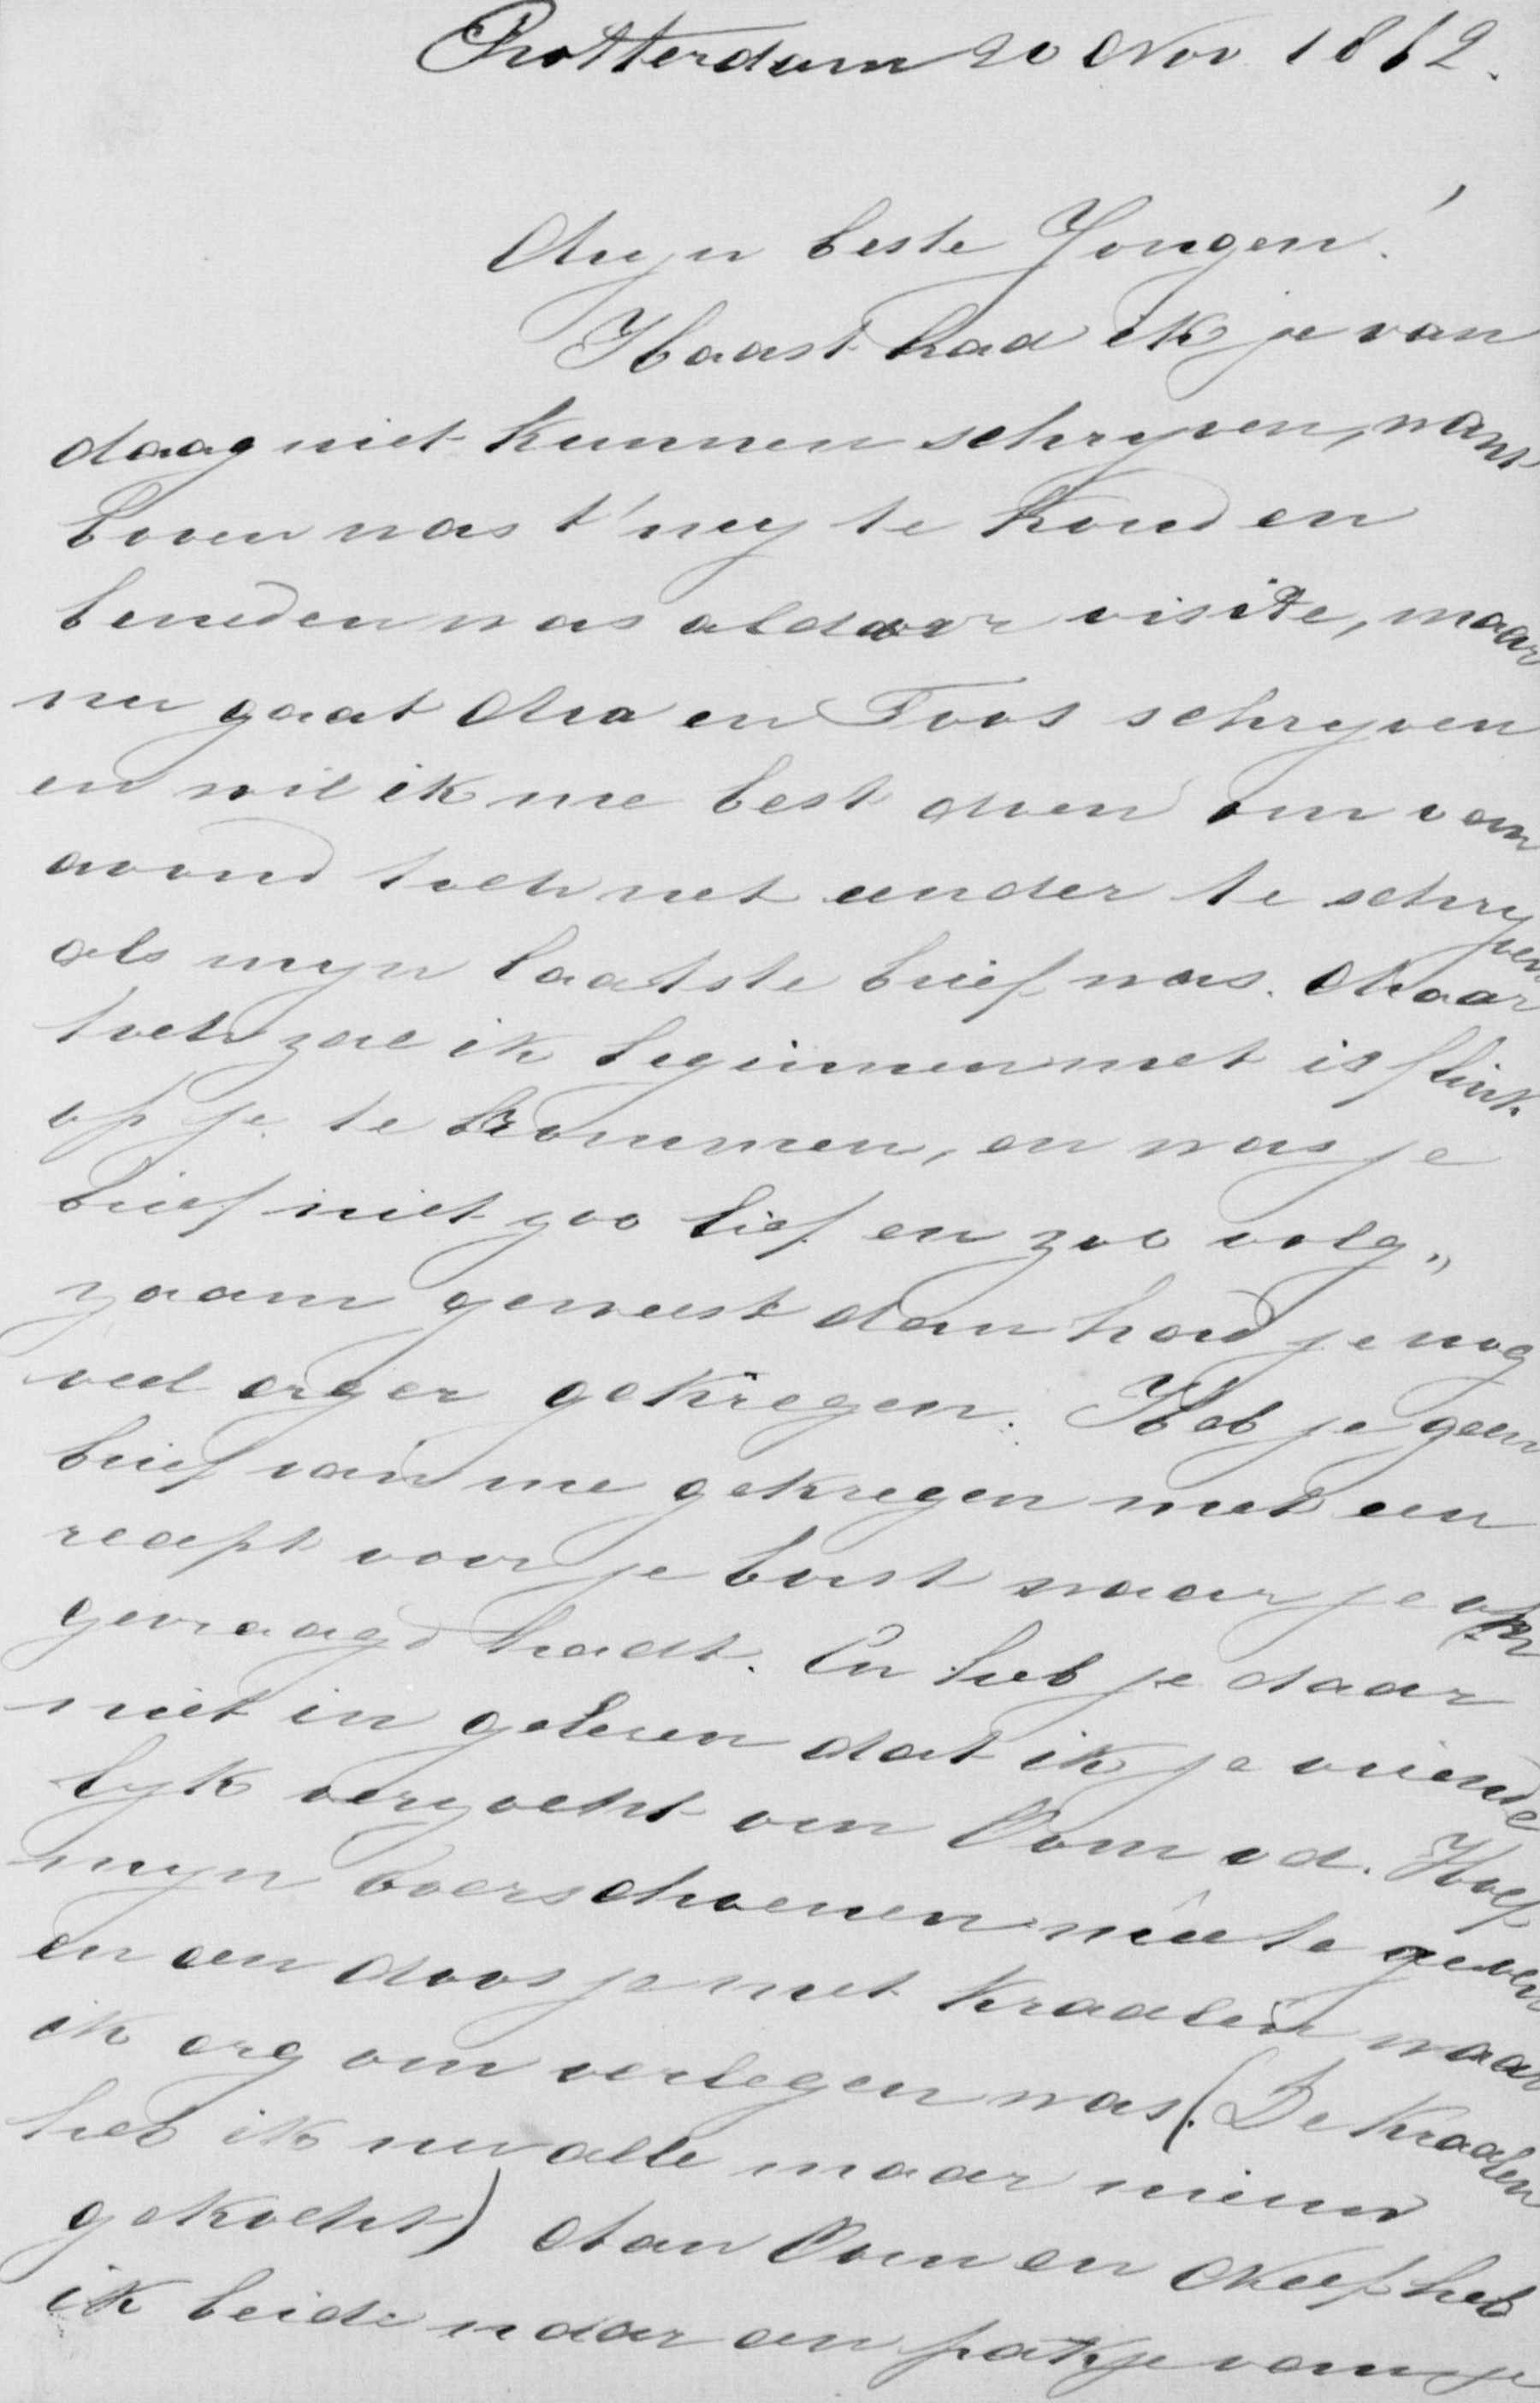 Rotterdam 20 Nov 1862.
Myn beste Jongen!
Haast had ik je van
daag niet kunnen schryven, want
boven was t' my te koud en
beneden was aldoor visite, maar
nu gaat Ma en Toos schryven
en wil ik me best doen om van
avond toch net eender te schryven
als myn laatste brief was. Maar
toch zal ik beginnen met is flink
op je te brommen, en was je
brief niet zoo lief en zoo volg„
zaam geweest dan had je nog
veel erger gekregen. Heb je geen
brief van me gekregen met een
recept voor je borst waar je om
gevraagd hadt. En heb je daar
niet in gelezen dat ik je vriende
lyk verzocht om Oom v d. Hoef
myn overschoenen meê te geven
en een doosje met kraalen waar
ik erg om verlegen was. (De kraalen
heb ik nu alle maar nieuw
gekocht) Aan Oom en Keef heb
ik beide naar een pakje van je